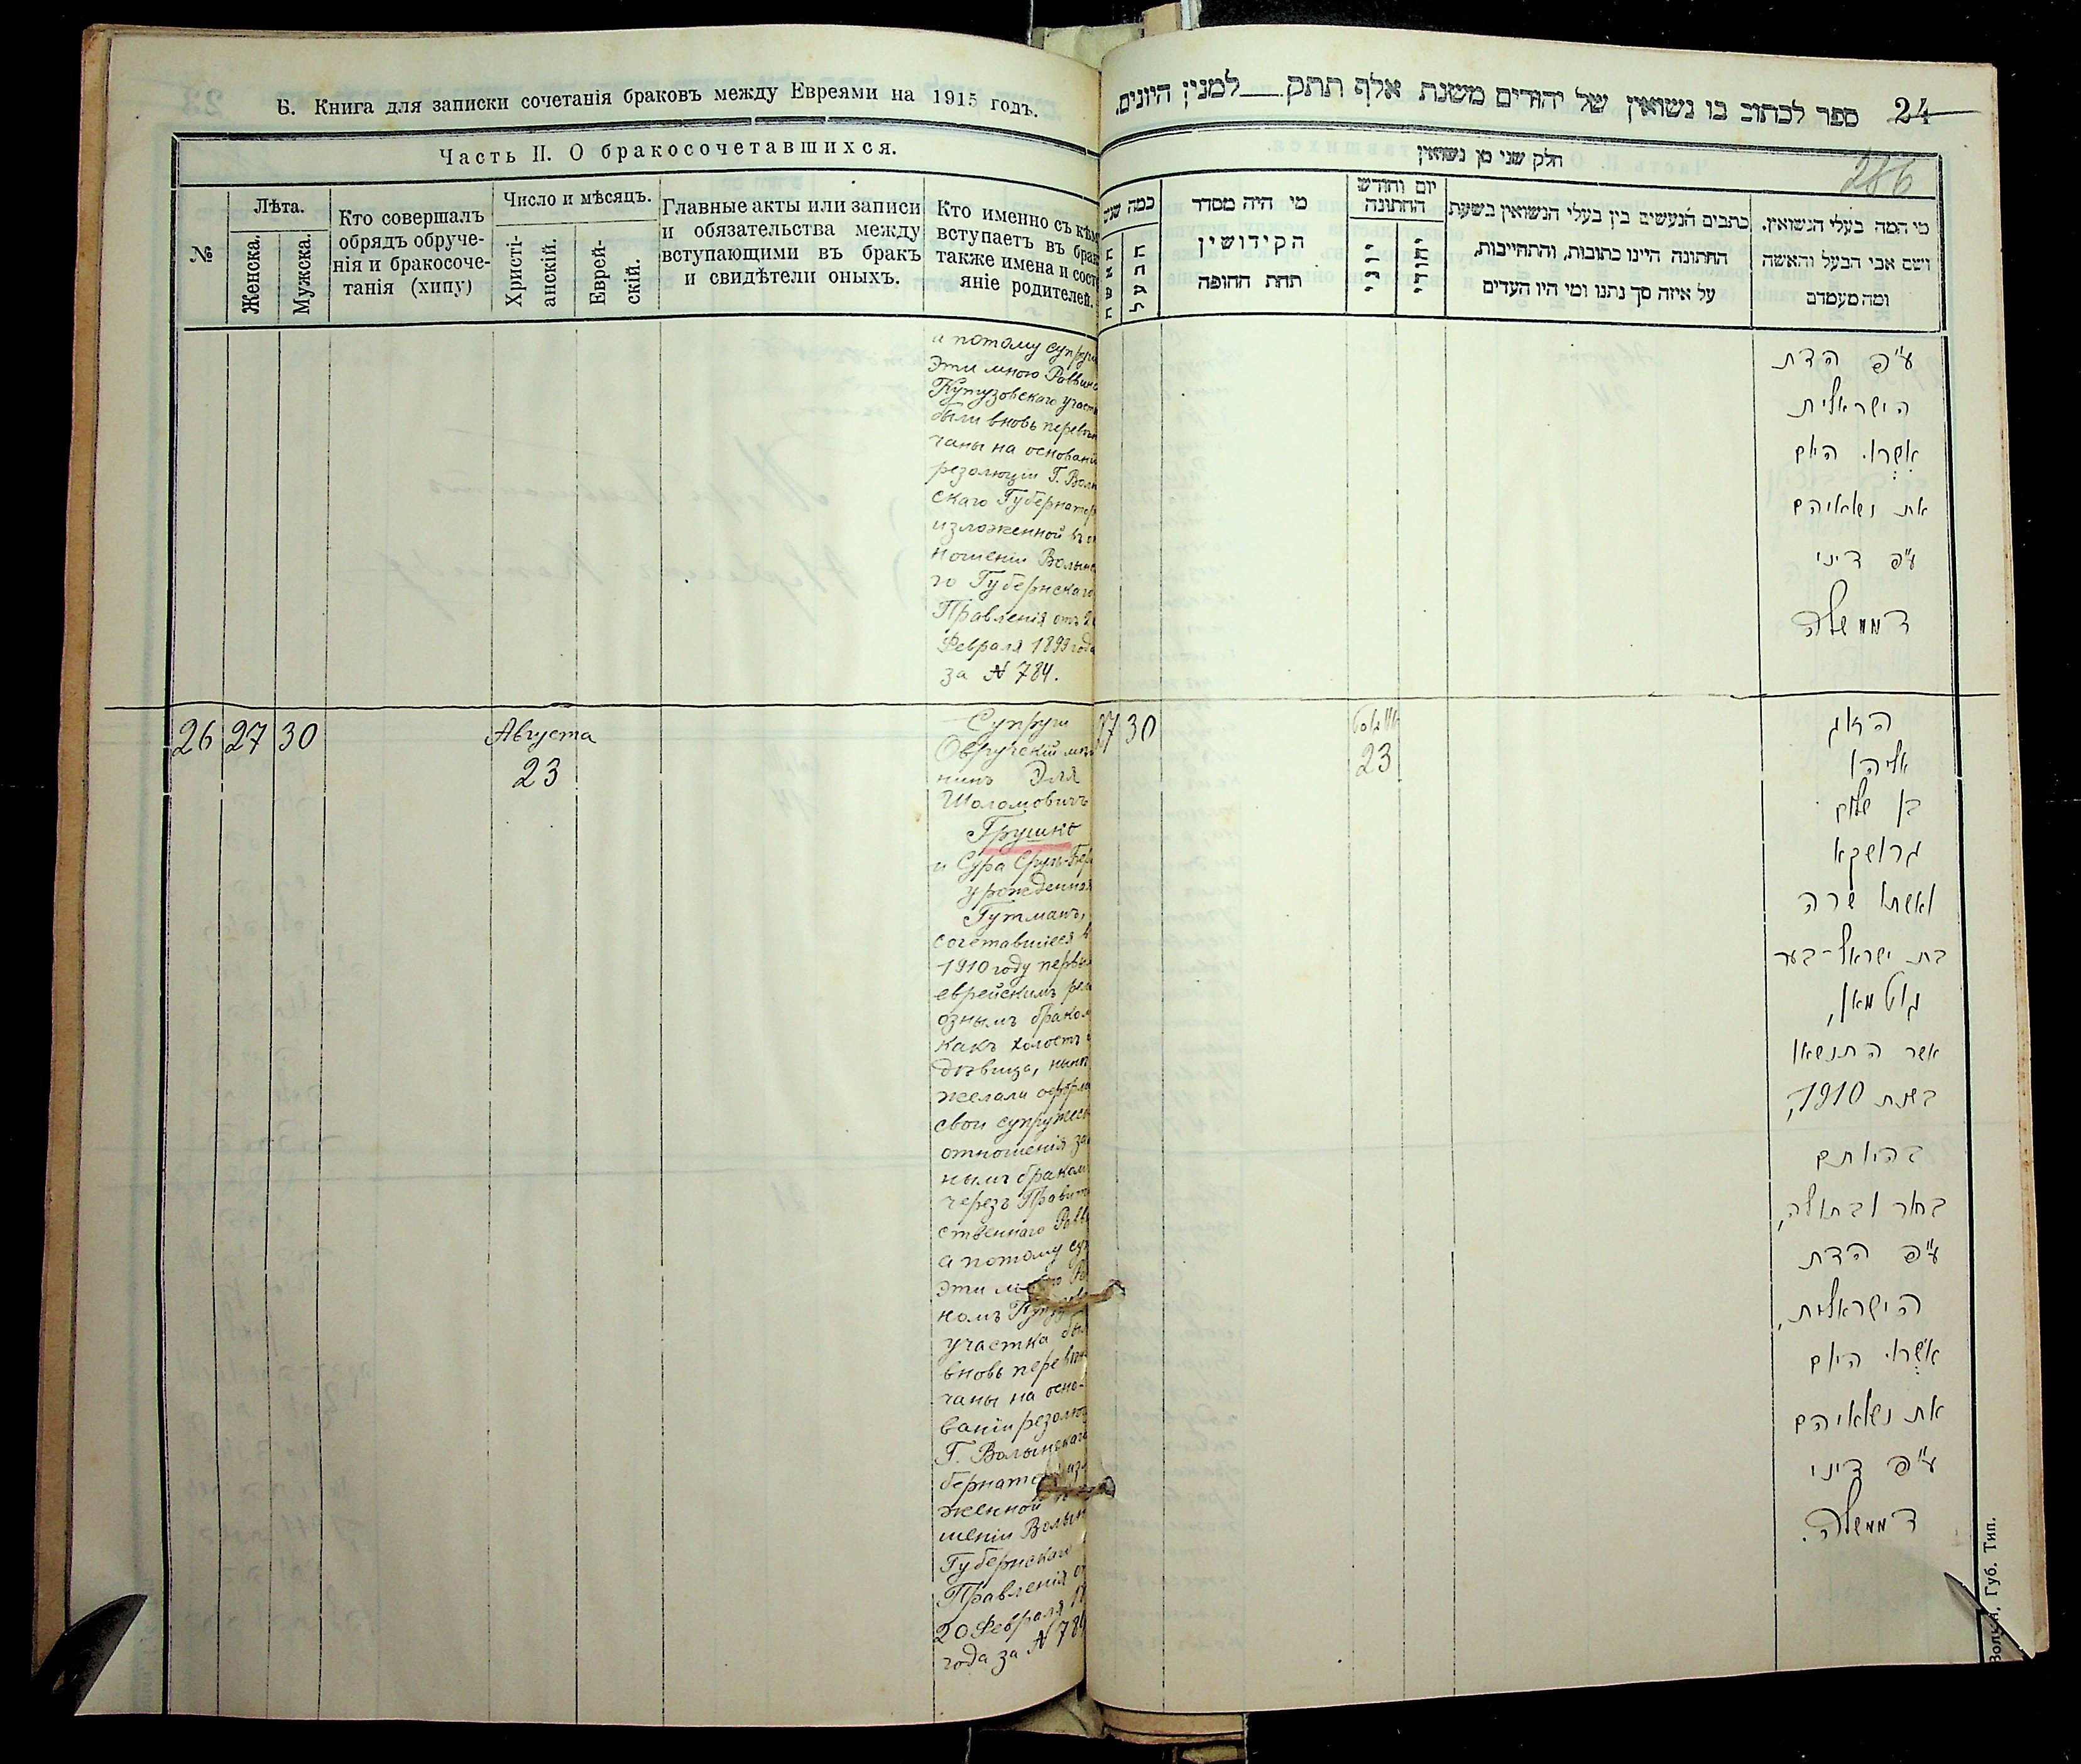 Б. Книга для записки сочетанія браковъ между Евреями на 1915 годъ.
Часть II. О бракосочетавшихся.
№
Лѣта.
Женска.
Мужска.
Кто совершалъ
обрядъ обруче-
нія и бракосоче-
танія (хипу)
Число и мѣсяцъ.
Христі-
анскій.
Еврей-
скій.
Главные акты или записи
и обязательства между
вступающими въ бракъ
и свидѣтели оныхъ.
Кто именно съ кѣмъ
вступаетъ въ брак
также имена и сост
яніе родителей.
а потому супру
эти мною Раввино
Кутузовскаго участ
были вновь перевѣн
чаны на основані
резолюціи Г. Волын
скаго Губернатор
изложенной въ от
ношеніи Волынс
го Губернскаго
Правленія отъ 2
Февраля 1893 года
за № 784.
26 27 30
Августа
23
Супруги
Овручскій мѣщ
нинъ Эля
Шоломовичъ
Грушко
и Сура Сруль-Бер
урожденная
Гутманъ,
сочетавшіеся в
1910 году первы
еврейскимъ рели
ознымъ браком
какъ холостъ и
дѣвица, нынѣ
желали оформ
свои супружеск
отношенія зак
нымъ браком
черезъ Правит
ственнаго Равв
а потому суп
эти м Ра
номъ Кутуз
участка был
вновь перевѣн
чаны на осно-
ваніи резолюц
Г. Волынскаго
бернато изл
женной
шеніи Волын
Губернскаго
Правленія о
20 Февраля 18
года за № 784
ספר לכתוב בו נשואין של יהודים משנת אלף תתק למנין היונים.
24
286
חלק שני מן נשואין
כמה שנים
האשה
הבעל
מי היה מסדר
הקידושין
תחת החופה
יום וחודש
החתונה
כתבים הנעשים בין בעלי הנשואין בשעת
החתונה היינו כתובות, והתחייבות,
על איזה סך נתנו ומי היו העדים
מי המה בעלי הנשואין.
ושם אבי הבעל והאשה
ומה מעמדם
ע״פ הדת
הישראלית
אשרו היום
את נשואיהם
ע״פ דיני
דממשלה
27 30
אווגוסט
23
הזוג
אליהו
בן שלום
גרושקא
ואשתו שרה
בת ישראל-בער
גוטמאן,
אשר התנשאו
בשנת 1910,
בהיותם
בחור ובתולה,
ע״פ הדת
הישראלית,
אשרו היום
את נשואיהם
ע״פ דיני
דממשלה.
Губ. Тип.